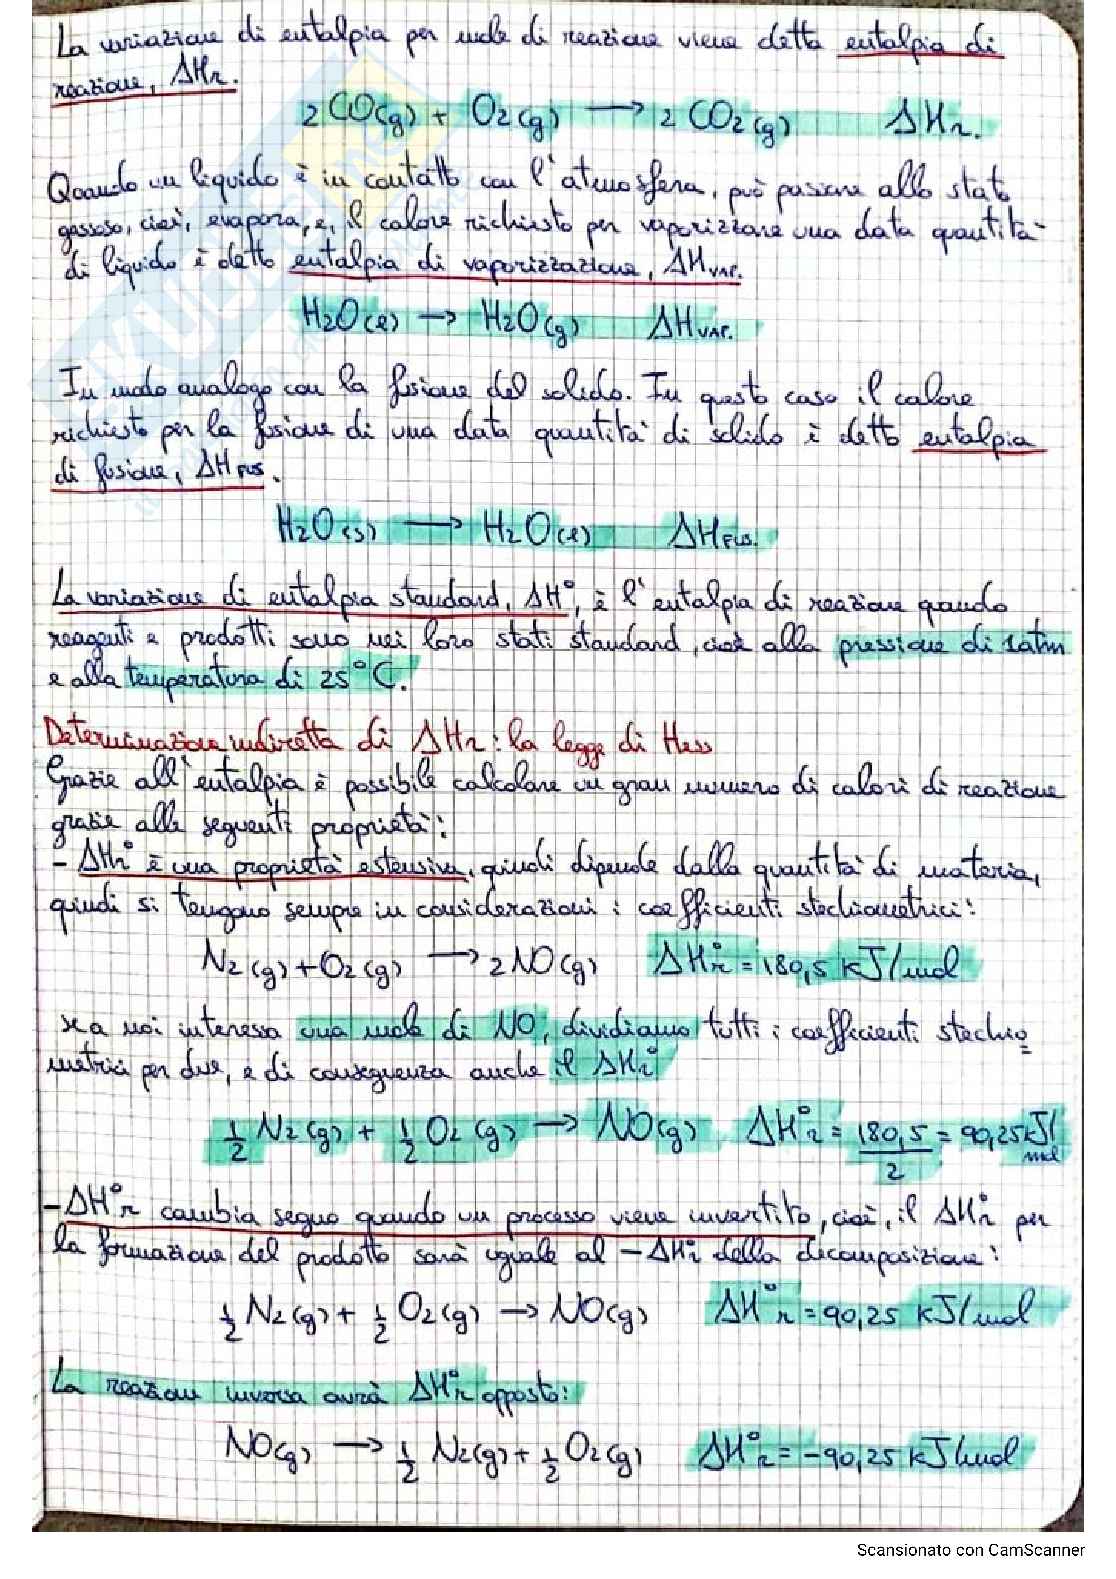 La variazione di entalpia per mole di reazione viene detta entalpia di
reazione, ΔHr.
2 CO(g) + O2(g) → 2 CO2(g) ΔHr.
Quando un liquido è in contatto con l'atmosfera, può passare allo stato
gassoso, cioè, evapora, e, il calore richiesto per vaporizzare una data quantità
di liquido è detto entalpia di vaporizzazione, ΔHVAP.
H2O(l) → H2O(g) ΔHVAP.
In modo analogo con la fusione del solido. In questo caso il calore
richiesto per la fusione di una data quantità di solido è detto entalpia
di fusione, ΔHFUS.
H2O(s) → H2O(l) ΔHFUS.
La variazione di entalpia standard, ΔH°, è l'entalpia di reazione quando
reagenti e prodotti sono nei loro stati standard, cioè alla pressione di 1atm
e alla temperatura di 25°C.
Determinazione indiretta di ΔHr: la legge di Hess
Grazie all'entalpia è possibile calcolare un gran numero di calori di reazione
grazie alle seguenti proprietà:
- ΔHr° è una proprietà estensiva, quindi dipende dalla quantità di materia,
quindi si tengono sempre in considerazioni i coefficienti stechiometrici:
N2(g) + O2(g) → 2 NO(g) ΔH°r = 180,5 kJ/mol
se a noi interessa una mole di NO, dividiamo tutti i coefficienti stechio
metrici per due, e di conseguenza anche il ΔHr°
1/2 N2(g) + 1/2 O2(g) → NO(g) ΔH°r = 180,5/2 = 90,25 kJ/mol
- ΔH°r cambia segno quando un processo viene invertito, cioè, il ΔH°r per
la formazione del prodotto sarà uguale al - ΔH°r della decomposizione:
1/2 N2(g) + 1/2 O2(g) → NO(g) ΔH°r = 90,25 kJ/mol
La reazione inversa avrà ΔH°r opposto:
NO(g) → 1/2 N2(g) + 1/2 O2(g) ΔH°r = -90,25 kJ/mol
Scansionato con CamScanner